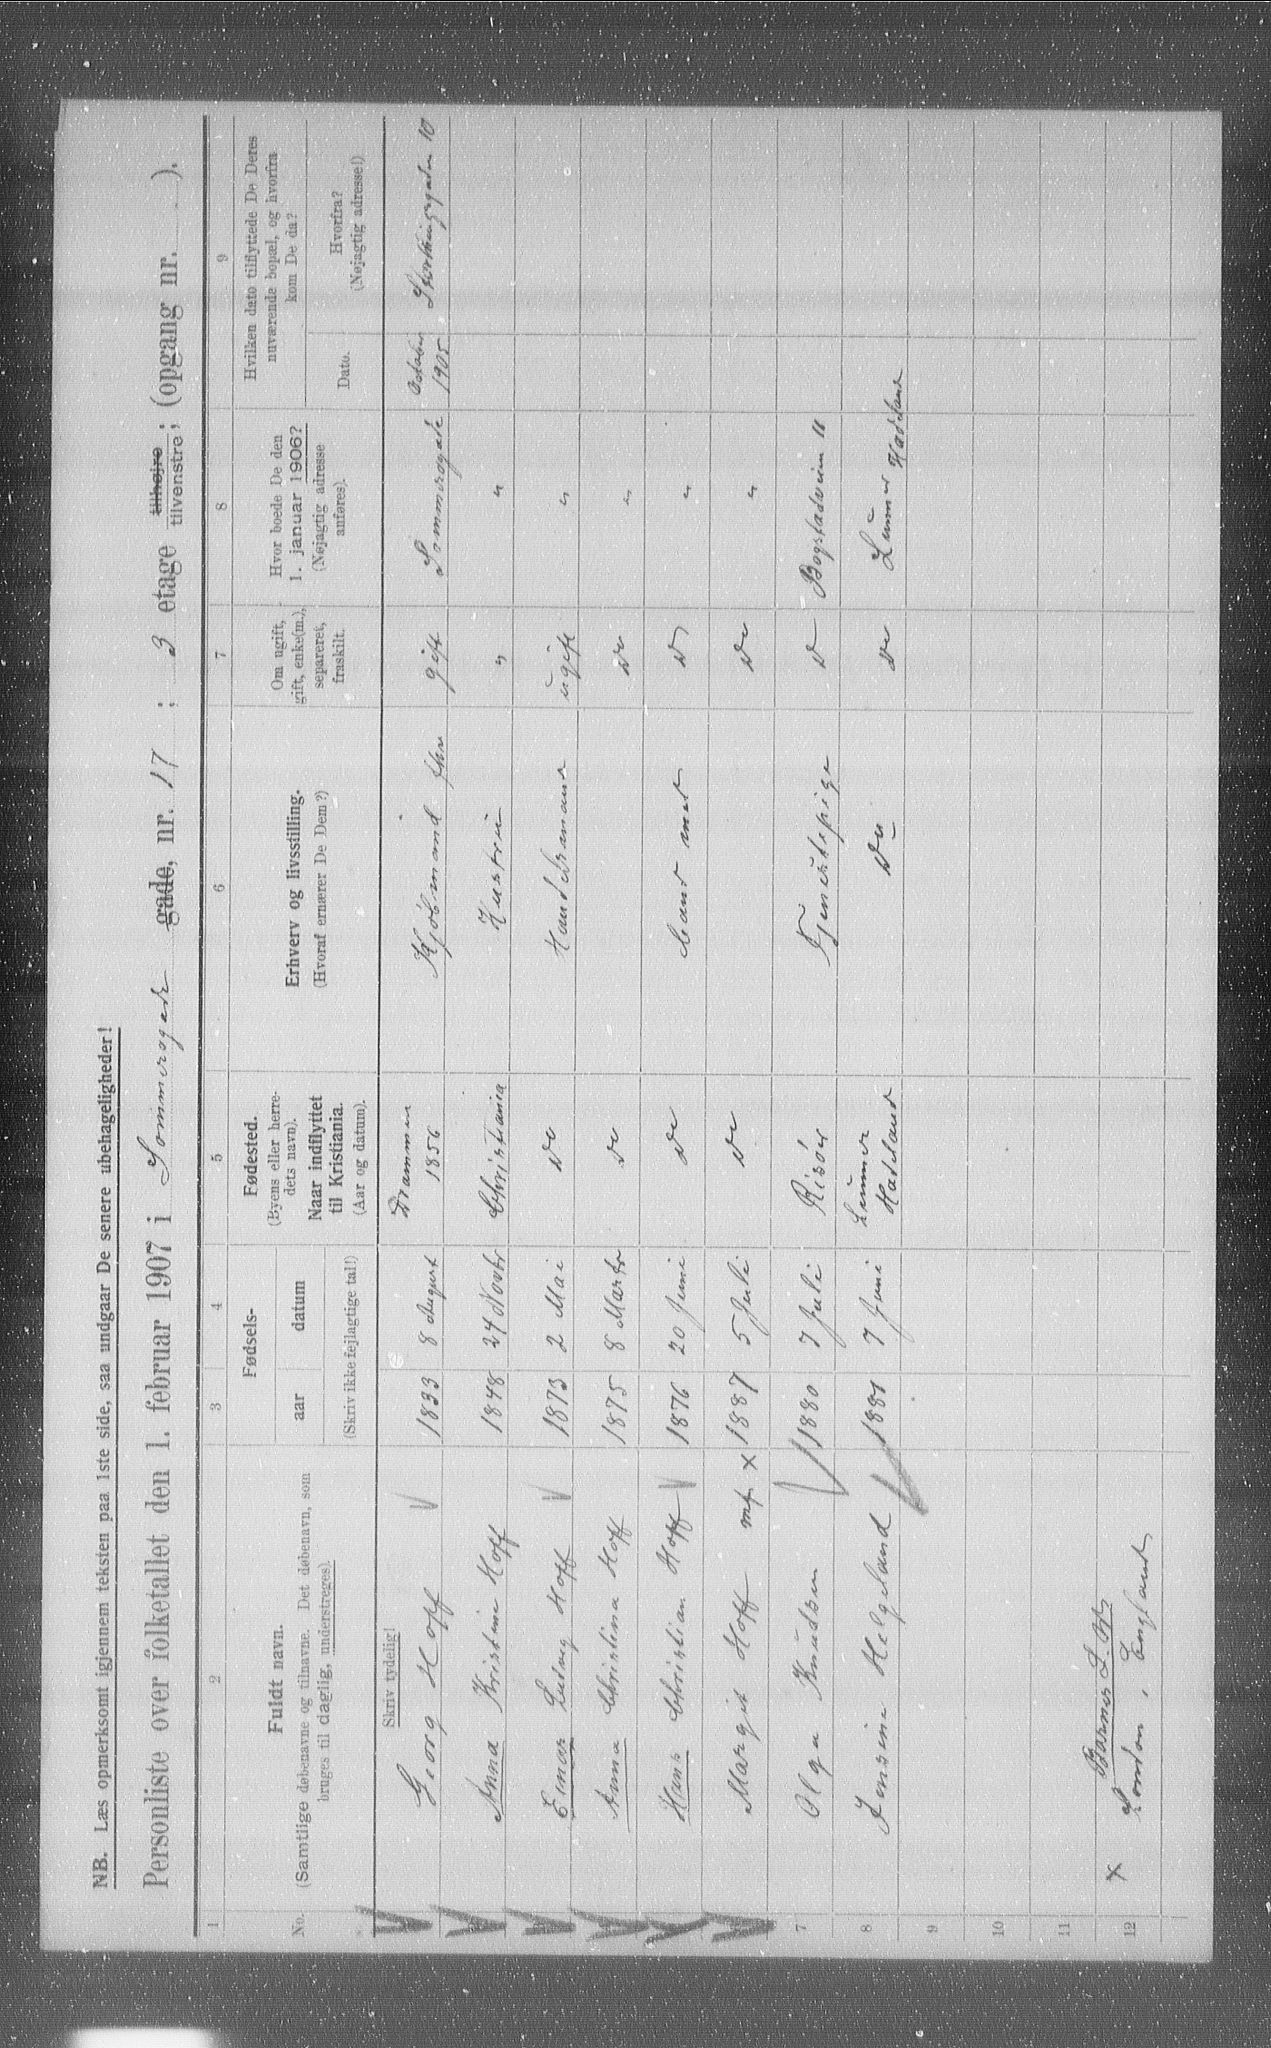 NB. Læs opmerksomt igjennem teksten paa 1ste side, saa undgaar De senere ubehageligheder!
Personliste over folketallet den 1. februar 1907 i Sommerogade gade, nr. 17 ; 3 etage tilhøjre tilvenstre; (opgang nr. ).
1 2 3 4 5 6 7 8 9
No.
Fuldt navn.
(Samtlige døbenavne og tilnavne. Det døbenavn, som
bruges til daglig, understreges).
Fødsels-
aar datum
(Skriv ikke fejlagtige tal!)
Fødested.
(Byens eller herre-
dets navn).
Naar indflyttet
til Kristiania.
(Aar og datum).
Erhverv og livsstilling.
(Hvoraf ernærer De Dem?)
Om ugift,
gift, enke(m.),
separeret,
fraskilt.
Hvor boede De den
1. januar 1906?
(Nøjagtig adresse
anføres).
Hvilken dato tilflyttede De Deres
nuværende bopæl, og hvorfra
kom De da?
Dato.
Hvorfra?
(Nøjagtig adresse!)
Skriv tydelig!
Georg Hoff 1833 8 August Drammen 1856 Kjøbmand gift Sommerogade October 1905 Storthingsgaden 10
Anna Kristine Hoff 1848 24 Novbr Christiania Hustru " "
Einar Ludvig Hoff 1873 2 Mai Do Handelsmand ugift "
Anna Christina Hoff 1875 8 Marts Do Do "
Hans Christian Hoff 1876 20 Juni Do Cand med Do "
Margit Hoff x 1887 5 Juli Do Do "
7 Olga Knudsen 1880 7 Juli Risør Tjenestepige Do Bogstadveien 11
8 Jensine Helgeland 1881 7 Juni Lunner Hadeland Do Do Lunner Hadeland
9
10
11
12
x Barnes
London, England